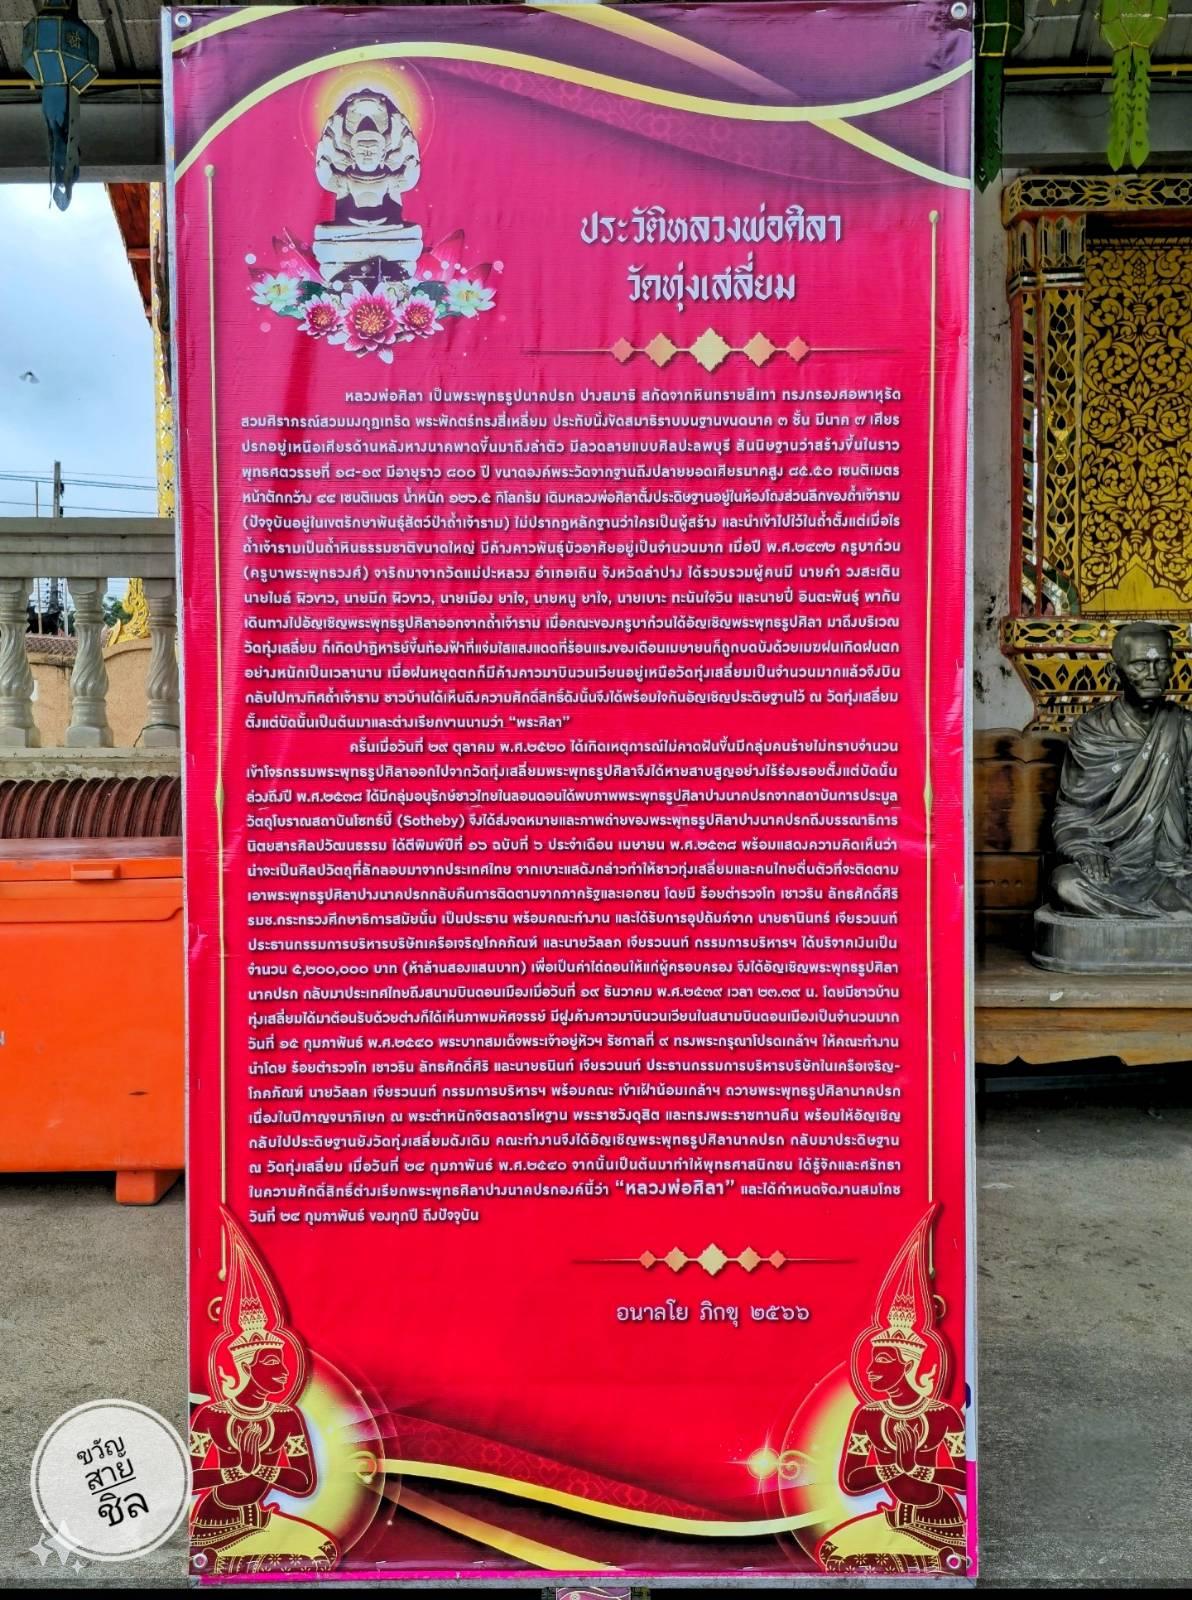 ประวัติหลวงพ่อศิลา
วัดทุ่งเสลี่ยม
หลวงพ่อศิลา เป็นพระพุทธรูปนาคปรก ปางสมาธิ สกัดจากหินทรายสีเทา ทรงกรองศอพาหุรัด
สวมศิราภรณ์สวมมงกุฎเทริด พระพักตร์ทรงสี่เหลี่ยม ประทับนั่งขัดสมาธิราบบนฐานขนดนาค ๓ ชั้น มีนาค ๗ เศียร
ปรกอยู่เหนือเศียรด้านหลังหางนาคพาดขึ้นมาถึงลำตัว มีลวดลายแบบศิลปะลพบุรี สันนิษฐานว่าสร้างขึ้นในราว
พุทธศตวรรษที่ ๑๘-๑๙ มีอายุราว ๘๐๐ ปี ขนาดองค์พระวัดจากฐานถึงปลายยอดเศียรนาคสูง ๘๕.๕๐ เซนติเมตร
หน้าตักกว้าง ๔๔ เซนติเมตร น้ำหนัก ๑๒๖.๕ กิโลกรัม เดิมหลวงพ่อศิลาตั้งประดิษฐานอยู่ในห้องโถงส่วนลึกของถ้ำเจ้าราม
(ปัจจุบันอยู่ในเขตรักษาพันธุ์สัตว์ป่าถ้ำเจ้าราม) ไม่ปรากฏหลักฐานว่าใครเป็นผู้สร้าง และนำเข้าไปไว้ในถ้ำตั้งแต่เมื่อไร
ถ้ำเจ้ารามเป็นถ้ำหินธรรมชาติขนาดใหญ่ มีค้างคาวพันธุ์บัวอาศัยอยู่เป็นจำนวนมาก เมื่อปี พ.ศ.๒๔๗๒ ครูบาก๋วน
(ครูบาพระพุทธวงศ์) จาริกมาจากวัดแม่ปะหลวง อำเภอเถิน จังหวัดลำปาง ได้รวบรวมผู้คนมี นายคำ วงสะเติน
นายไมล์ ผิวขาว, นายมีก ผิวขาว, นายเมือง ยาใจ, นายหนู ยาใจ, นายเบาะ ทะนันใจวิน และนายปี่ อินตะพันธุ์ พากัน
เดินทางไปอัญเชิญพระพุทธรูปศิลาออกจากถ้ำเจ้าราม เมื่อคณะของครูบาก๋วนได้อัญเชิญพระพุทธรูปศิลา มาถึงบริเวณ
วัดทุ่งเสลี่ยม ก็เกิดปาฏิหาริย์ขึ้นท้องฟ้าที่แจ่มใสแสงแดดที่ร้อนแรงของเดือนเมษายนก็ถูกบดบังด้วยเมฆฝนเกิดฝนตก
อย่างหนักเป็นเวลานาน เมื่อฝนหยุดตกก็มีค้างคาวมาบินวนเวียนอยู่เหนือวัดทุ่งเสลี่ยมเป็นจำนวนมากแล้วจึงบิน
กลับไปทางทิศถ้ำเจ้าราม ชาวบ้านได้เห็นถึงความศักดิ์สิทธิ์ดังนั้นจึงได้พร้อมใจกันอัญเชิญประดิษฐานไว้ ณ วัดทุ่งเสลี่ยม
ตั้งแต่บัดนั้นเป็นต้นมาและต่างเรียกขานนามว่า “พระศิลา”
ครั้นเมื่อวันที่ ๒๙ ตุลาคม พ.ศ.๒๕๒๐ ได้เกิดเหตุการณ์ไม่คาดฝันขึ้นมีกลุ่มคนร้ายไม่ทราบจำนวน
เข้าโจรกรรมพระพุทธรูปศิลาออกไปจากวัดทุ่งเสลี่ยมพระพุทธรูปศิลาจึงได้หายสาบสูญอย่างไร้ร่องรอยตั้งแต่บัดนั้น
ล่วงถึงปี พ.ศ.๒๕๓๘ ได้มีกลุ่มอนุรักษ์ชาวไทยในลอนดอนได้พบภาพพระพุทธรูปศิลาปางนาคปรกจากสถาบันการประมูล
วัตถุโบราณสถาบันโซทธ์บี้ (Sotheby) จึงได้ส่งจดหมายและภาพถ่ายของพระพุทธรูปศิลาปางนาคปรกถึงบรรณาธิการ
นิตยสารศิลปวัฒนธรรม ได้ตีพิมพ์ปีที่ ๑๖ ฉบับที่ ๖ ประจำเดือน เมษายน พ.ศ.๒๕๓๘ พร้อมแสดงความคิดเห็นว่า
น่าจะเป็นศิลปวัตถุที่ลักลอบมาจากประเทศไทย จากเบาะแสดังกล่าวทำให้ชาวทุ่งเสลี่ยมและคนไทยตื่นตัวที่จะติดตาม
เอาพระพุทธรูปศิลาปางนาคปรกกลับคืนการติดตามจากภาครัฐและเอกชน โดยมี ร้อยตำรวจโท เชาวริน ลัทธศักดิ์ศิริ
รมช.กระทรวงศึกษาธิการสมัยนั้น เป็นประธาน พร้อมคณะทำงาน และได้รับการอุปถัมภ์จาก นายธานินทร์ เจียรวนนท์
ประธานกรรมการบริหารบริษัทเครือเจริญโภคภัณฑ์ และนายวัลลภ เจียรวนนท์ กรรมการบริหารฯ ได้บริจาคเงินเป็น
จำนวน ๕,๒๐๐,๐๐๐ บาท (ห้าล้านสองแสนบาท) เพื่อเป็นค่าไถ่ถอนให้แก่ผู้ครอบครอง จึงได้อัญเชิญพระพุทธรูปศิลา
นาคปรก กลับมาประเทศไทยถึงสนามบินดอนเมืองเมื่อวันที่ ๑๙ ธันวาคม พ.ศ.๒๕๓๙ เวลา ๒๓.๓๙ น. โดยมีชาวบ้าน
ทุ่งเสลี่ยมได้มาต้อนรับด้วยต่างก็ได้เห็นภาพมหัศจรรย์ มีฝูงค้างคาวมาบินวนเวียนในสนามบินดอนเมืองเป็นจำนวนมาก
วันที่ ๑๕ กุมภาพันธ์ พ.ศ.๒๕๔๐ พระบาทสมเด็จพระเจ้าอยู่หัวฯ รัชกาลที่ ๙ ทรงพระกรุณาโปรดเกล้าฯ ให้คณะทำงาน
นำโดย ร้อยตำรวจโท เชาวริน ลัทธศักดิ์ศิริ และนายธนินท์ เจียรวนนท์ ประธานกรรมการบริหารบริษัทในเครือเจริญ-
โภคภัณฑ์ นายวัลลภ เจียรวนนท์ กรรมการบริหารฯ พร้อมคณะ เข้าเฝ้าน้อมเกล้าฯ ถวายพระพุทธรูปศิลานาคปรก
เนื่องในปีกาญจนาภิเษก ณ พระตำหนักจิตรลดารโหฐาน พระราชวังดุสิต และทรงพระราชทานคืน พร้อมให้อัญเชิญ
กลับไปประดิษฐานยังวัดทุ่งเสลี่ยมดังเดิม คณะทำงานจึงได้อัญเชิญพระพุทธรูปศิลานาคปรก กลับมาประดิษฐาน
ณ วัดทุ่งเสลี่ยม เมื่อวันที่ ๒๔ กุมภาพันธ์ พ.ศ.๒๕๔๐ จากนั้นเป็นต้นมาทำให้พุทธศาสนิกชน ได้รู้จักและศรัทธา
ในความศักดิ์สิทธิ์ต่างเรียกพระพุทธศิลาปางนาคปรกองค์นี้ว่า “หลวงพ่อศิลา” และได้กำหนดจัดงานสมโภช
วันที่ ๒๔ กุมภาพันธ์ ของทุกปี ถึงปัจจุบัน
อนาลโย ภิกขุ ๒๕๖๖
ขวัญ
สาย
ชิล